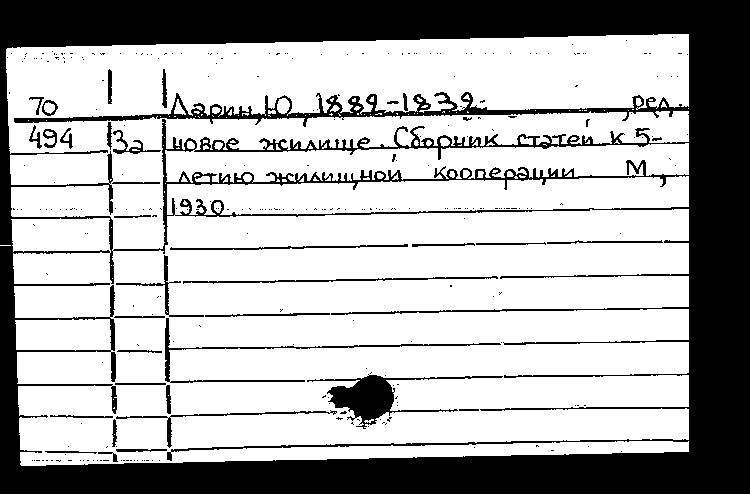 70 Ларин, Ю, 1882-1832- , ред.
494 За новое жилище. Сборник статей к 5-
летию жилищной кооперации М,
1930.